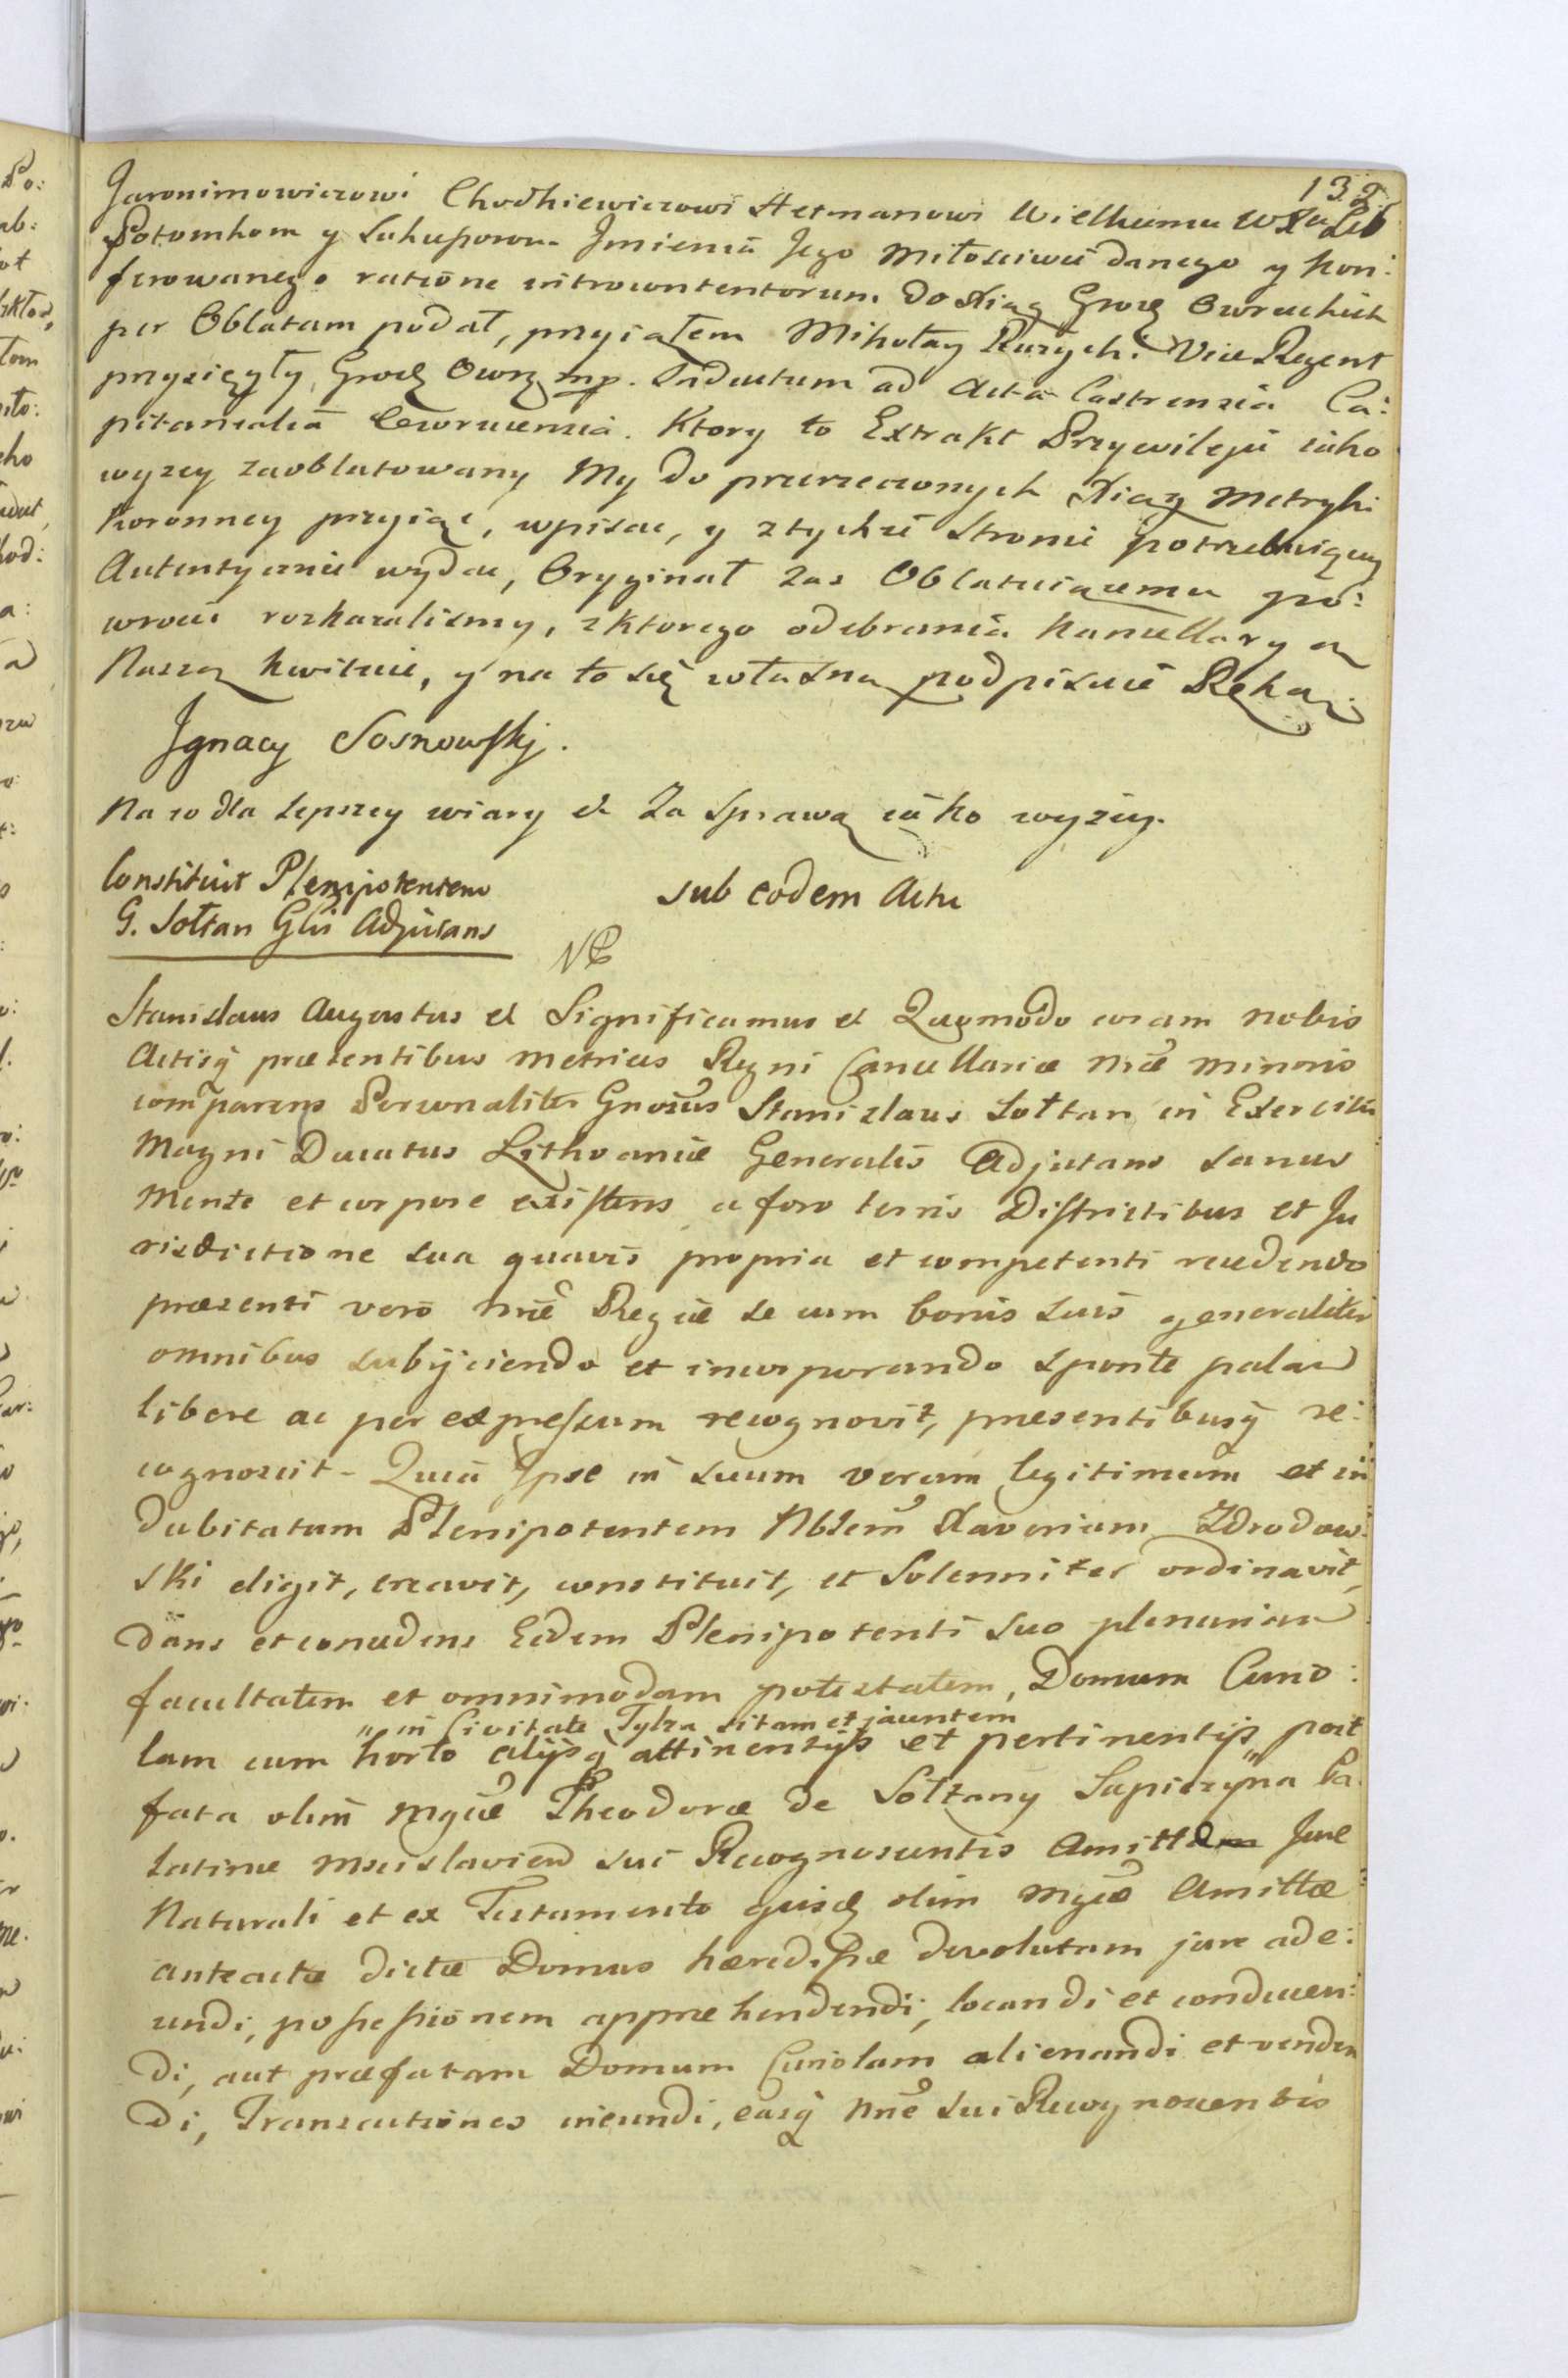 132.
Jaronimowiczowi Chodkiewiczowi Hetmanowi Wielkiemu WXa Lit
Potomkom y Sukcessorom Jmieniu Jego Miłosciwie danego y kon:
ferowanego ratione introcontentorum do Xiąg Grodz Owruckich
per Oblatam podał, przyiąłem Mikołay Kurzych: Vice Regent
przysięgły Grodz Owrz mp. Inductum ad Acta Castrensia Ca:
pitanealia Owrucensia. Ktory to Extrakt Przywileju iako
wyzey zaoblatowany My do przerzeczonych Xiąg Metryki
Koronney przyiąc, wpisac, y z tychze Stronie potrzebuiącey
Autentycznie wydac, Oryginał zas Oblatuiącemu po:
wrocic rozkazalismy, z ktorego odebrania Kancellaryą
Naszą kwituie, y na to się własną podpisuie Ręką.
Jgnacy Sosnowskj.
Na co dla lepszey wiary et Za sprawą iako wyzey.
Constituit Plenipotentem
G. Sołtan Glis Adjutans
sub eodem Actu
Stanislaus Augustus et Significamus et Quomodo coram nobis
Actisq præsentibus Metrices Regni Cancellariæ nræ minoris
comparens Personaliter Gnosus Stanislaus Sołtan in Exercitu
Magni Ducatus Lithvaniæ Generalis Adjutans sanus
Mente et corpore existens a foro terris Districtibus et Ju
risdictione sua quavis propria et competenti recedendo
præsenti vero nræ Regiæ se cum bonis suis generaliter
omnibus subijciendo et incorporando sponte palam
libere ac per expressum recognovit, præsentibusq re:
cognoscit. Quia Jpse in suum verum legitimum et in
dubitatum Plenipotentem Nblem Xaverium Zdrodow:
ski eligit, creavit, constituit, et Solenniter ordinavit,
dans et concedens Eidem Plenipotenti suo plenariam
facultatem et omnimodam potestatem, Domum Curio:
in Civitate Tylza sitam et jacentem
lam cum horto alijsq attinentijs et pertinentijs post
fata olim Mgcæ Theodoræ de Sołtany Sapiezyna Pa
latinæ Mscislavien sui Recognoscentis Amittæ Jure
Naturali et ex Testamento ejusd olim Mgcæ Amittæ
anteactæ dictæ Domus hæredissæ devolutam jure ade:
undi, possessionem apprehendendi, locandi et conducen:
di, aut præfatam Domum Curiolam alienandi et venden
di, Transactiones ineundi, easq nne sui Recognoscentis